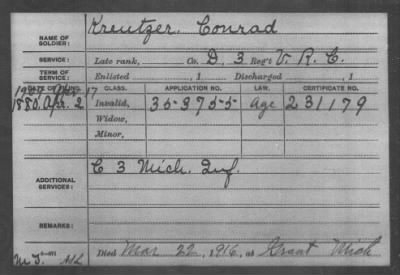 NAME OF SOLDIER: Kreutzer, Conrad
SERVICE: Late rank, Co. D, 3 Reg't V. R. C.
TERM OF SERVICE: Enlisted , 1 Discharged , 1
DATE OF FILING. CLASS. APPLICATION NO. LAW. CERTIFICATE NO.
1880, Apr. 2 Invalid, 353755 Age 231179
Widow,
Minor,
ADDITIONAL SERVICES: C 3 Mich. Inf.
REMARKS:
Died Mar 22, 1916, at Grant Mich